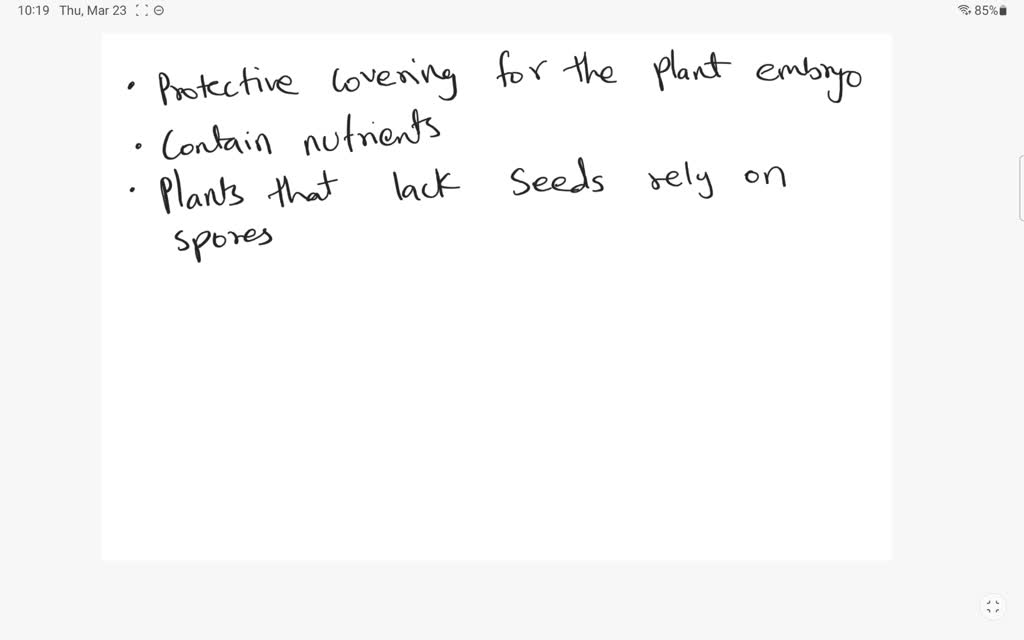 10:19 Thu, Mar 23 85%
• Protective covering for the plant embryo
• Contain nutrients
• Plants that lack seeds rely on
spores